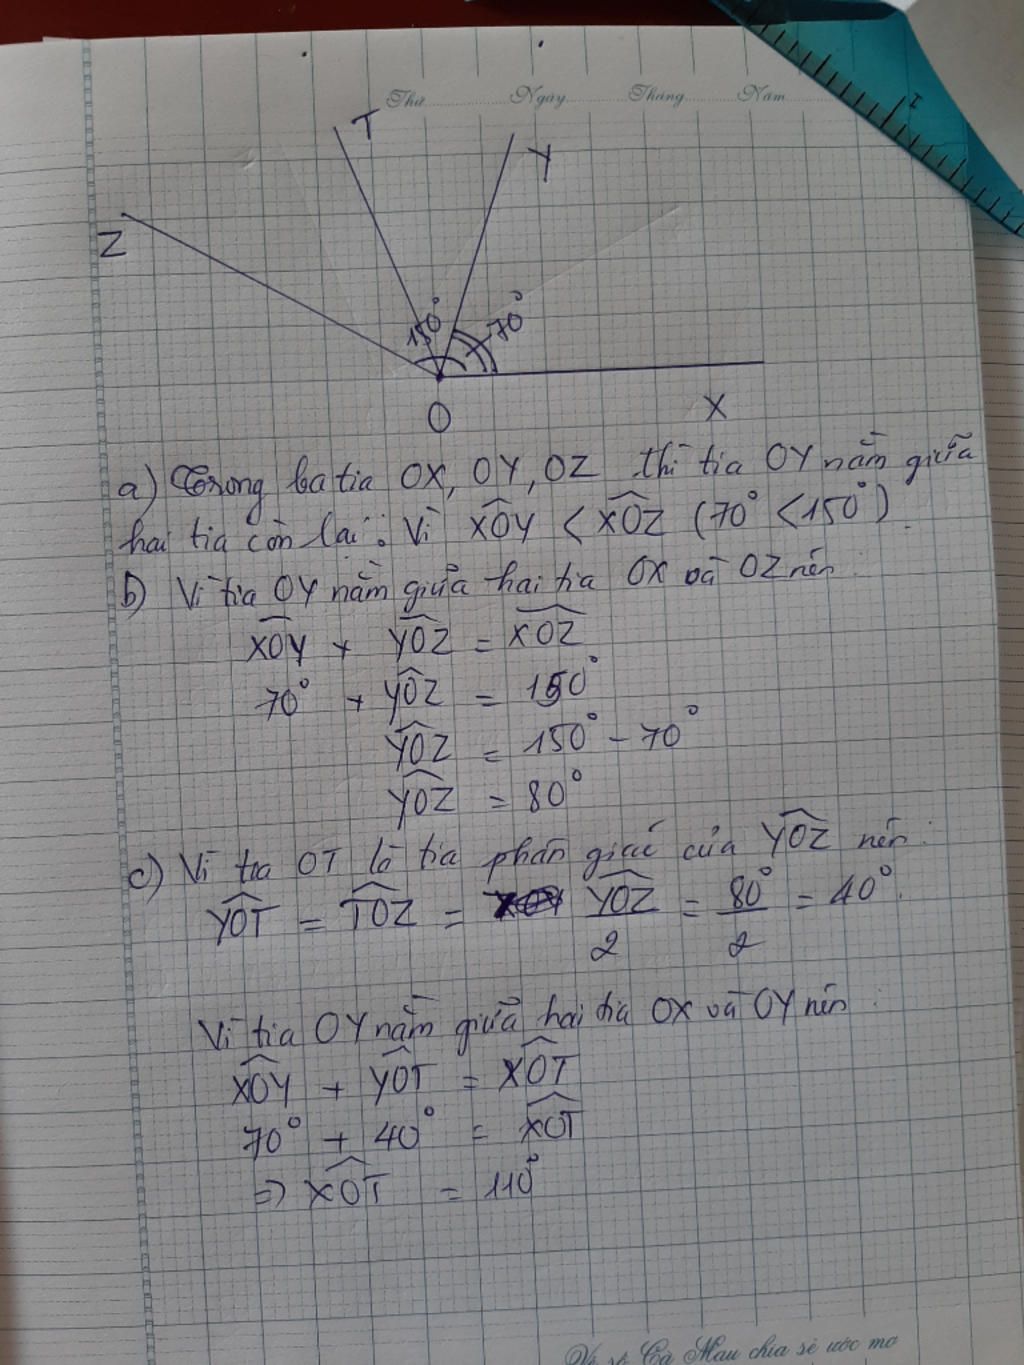 Thứ Ngày Tháng Năm
T
Y
Z
150° 70°
O
X
a) Trong ba tia OX, OY, OZ thì tia OY nằm giữa
hai tia còn lại. Vì XÔY < XÔZ (70° < 150°).
b) Vì tia OY nằm giữa hai tia OX và OZ nên:
XÔY + YÔZ = XÔZ
70° + YÔZ = 150°
YÔZ = 150° - 70°
YÔZ = 80°
c) Vì tia OT là tia phân giác của YÔZ nên:
YÔT = TÔZ = YÔZ/2 = 80°/2 = 40°.
Vì tia OY nằm giữa hai tia OX và OY nên:
XÔY + YÔT = XÔT
70° + 40° = XÔT
=> XÔT = 110°
Vé số Cà Mau chia sẻ ước mơ